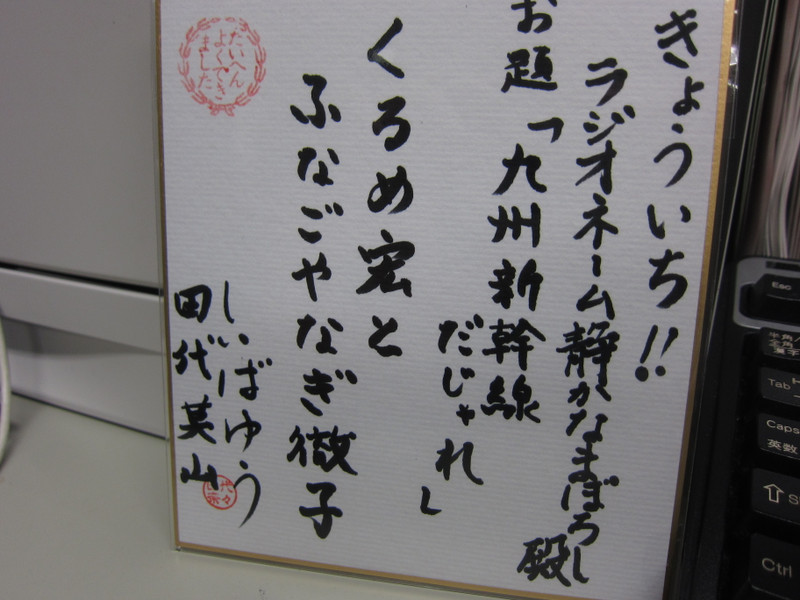 きょういち!!
ラジオネーム静かなまぼろし
殿
お題「九州新幹線
だじゃれ」
くるめ宏と
ふなごやなぎ徹子
しいばゆう
田代英山
たいへん
よくでき
ました
Esc
半角/
全角
漢字
Tab
Caps
英数
Ctrl